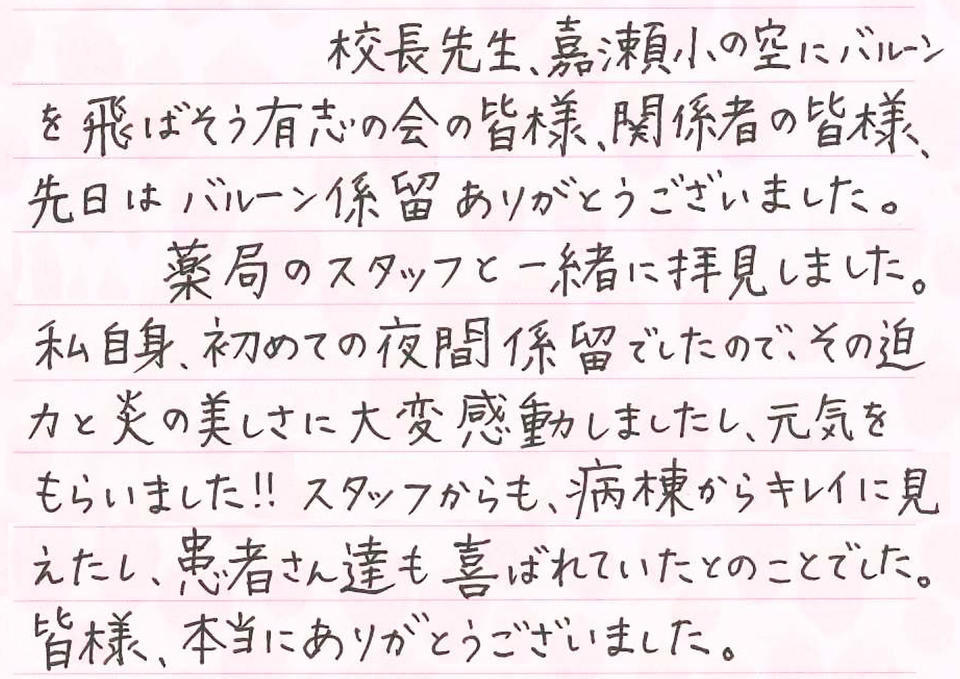 校長先生、嘉瀬小の空にバルーン
を飛ばそう有志の会の皆様、関係者の皆様、
先日はバルーン係留ありがとうございました。
薬局のスタッフと一緒に拝見しました。
私自身、初めての夜間係留でしたので、その迫
力と炎の美しさに大変感動しましたし、元気を
もらいました!! スタッフからも、病棟からキレイに見
えたし、患者さん達も喜ばれていたとのことでした。
皆様、本当にありがとうございました。